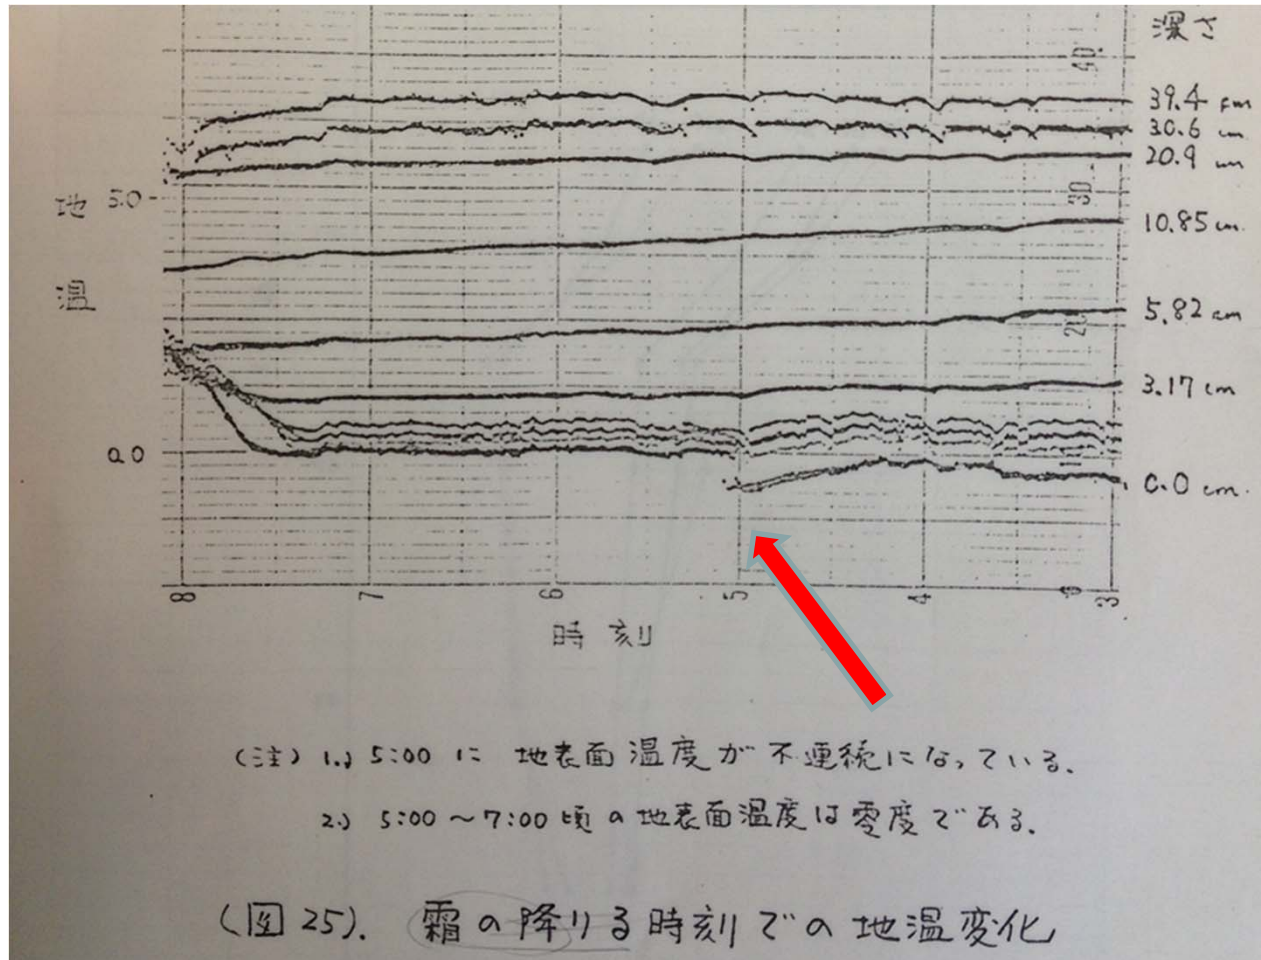 深さ
40.
39.4 cm
30.6 cm
20.9 cm
地 5.0
30
10.85 cm.
温
5.82 cm
20
3.17 cm
0.0
0.0 cm.
8 7 6 5 4 3
時刻
(注) 1.) 5:00 に 地表面温度が不連続になっている.
2.) 5:00 ~ 7:00 頃の地表面温度は零度である.
(図 25). 霜の降りる時刻での地温変化